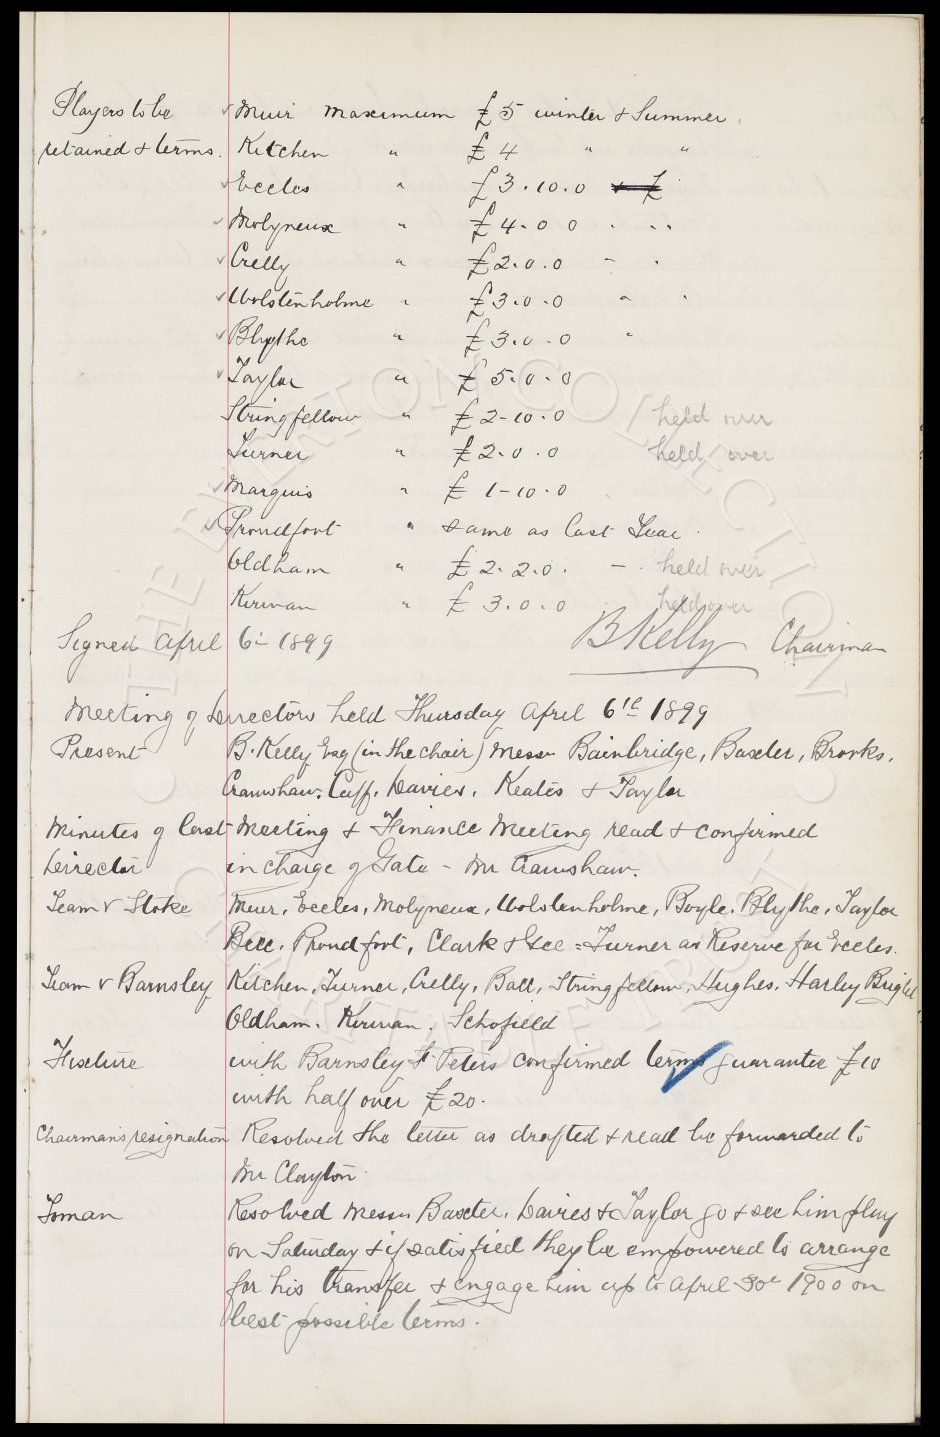 Players to be ✓ Muir maximum £5 winter & Summer.
retained & terms. Kitchen " £4 " "
✓ Eccles " £3.10.0
✓ Molyneux " £4.0 0 . ..
✓ Crelly " £2.0.0 - .
✓ Wolstenholme " £3.0.0 " "
✓ Blythe " £3.0.0 "
✓ Taylor " £5.0.0
Stringfellow " £2-10.0 held over
Turner " £2.0.0 held over
✓ Marquis " £1-10.0
✓ Proudfoot " same as last Year.
Oldham " £2.2.0. - . held over
Kirwan " £3.0.0 held over
Signed April 6th 1899 B Kelly Chairman
Meeting of Directors held Thursday April 6th 1899
Present B. Kelly Esq (in the chair) Messrs Bainbridge, Baxter, Brooks,
Crawshaw, Cuff, Davies, Keates & Taylor
Minutes of last Meeting & Finance Meeting read & confirmed
Director in charge of Gate - Mr Crawshaw.
Team v Stoke Muir, Eccles, Molyneux, Wolstenholme, Boyle, Blythe, Taylor
Bell, Proudfoot, Clark & Gee = Turner as Reserve for Eccles.
Team v Barnsley Kitchen, Turner, Crelly, Ball, Stringfellow, Hughes, Harley Bright
Oldham. Kirwan. Schofield
Fixture with Barnsley St Peters confirmed terms guarantee £10
with half over £20.
Chairman's resignation Resolved the letter as drafted & read be forwarded to
Mr Clayton.
Toman Resolved Messrs Baxter, Davies & Taylor go & see him play
on Saturday & if satisfied they be empowered to arrange
for his transfer & engage him up to April 30th 1900 on
best possible terms.
THE EVERTON COLLECTION